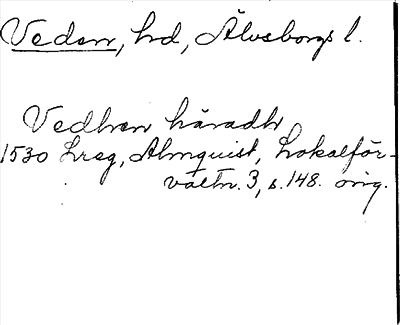 Veden, hd, Älvsborgs l.
Vedhen häradh
1530 Lreg, Almquist, Lokalför-
valtn. 3, s. 148. orig.